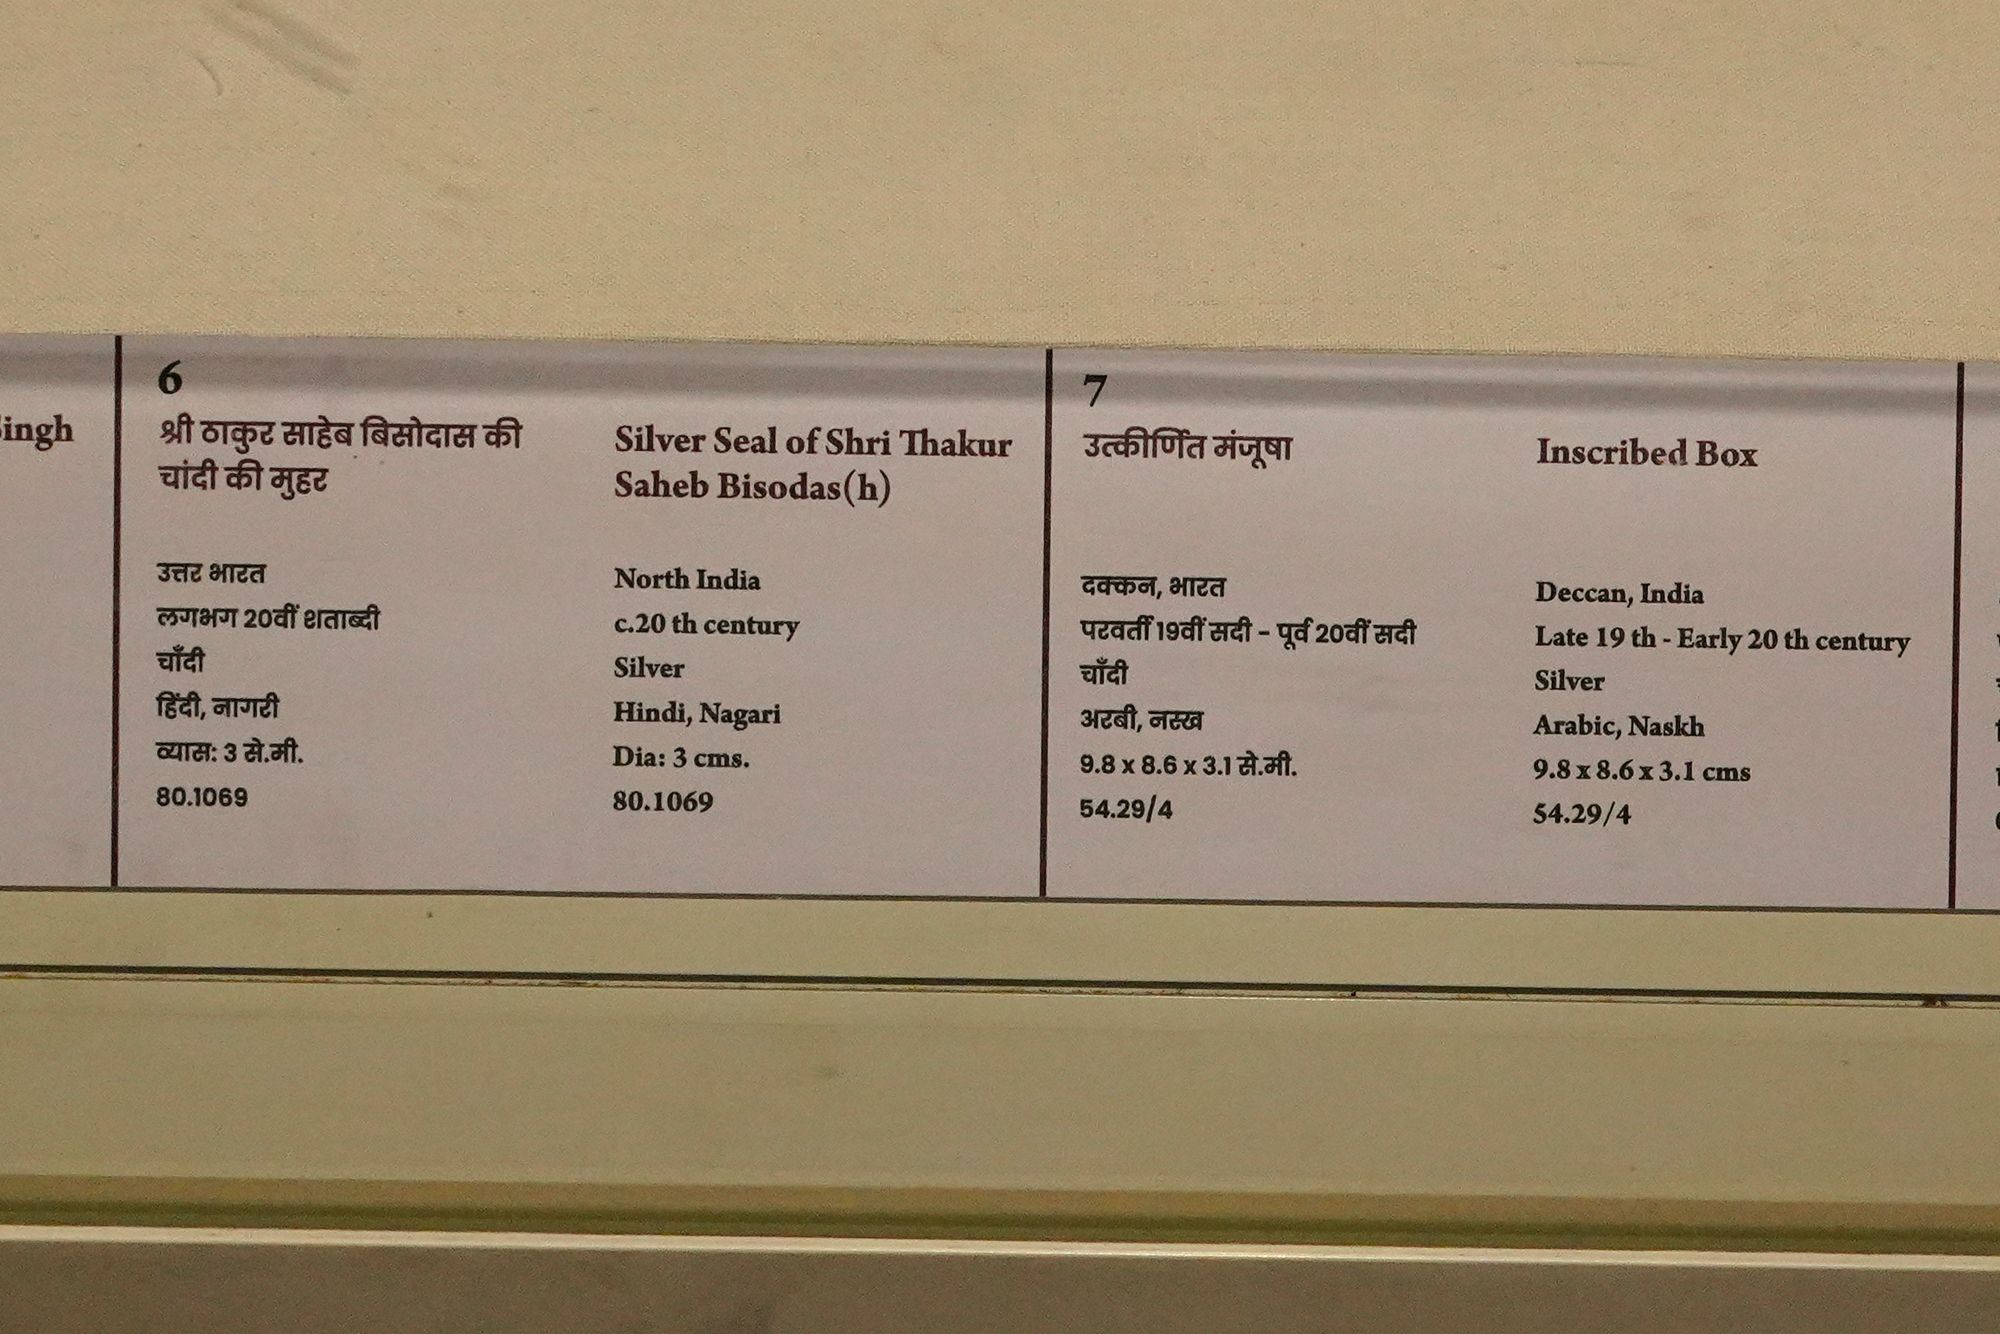 ingh
6
श्री ठाकुर साहेब बिसोदास की
चांदी की मुहर
उत्तर भारत
लगभग 20वीं शताब्दी
चाँदी
हिंदी, नागरी
व्यास: 3 से.मी.
80.1069
Silver Seal of Shri Thakur
Saheb Bisodas(h)
North India
c.20 th century
Silver
Hindi, Nagari
Dia: 3 cms.
80.1069
7
उत्कीर्णित मंजूषा
दक्कन, भारत
परवर्ती 19वीं सदी - पूर्व 20वीं सदी
चाँदी
अरबी, नस्ख
9.8 x 8.6 x 3.1 से.मी.
54.29/4
Inscribed Box
Deccan, India
Late 19 th - Early 20 th century
Silver
Arabic, Naskh
9.8 x 8.6 x 3.1 cms
54.29/4